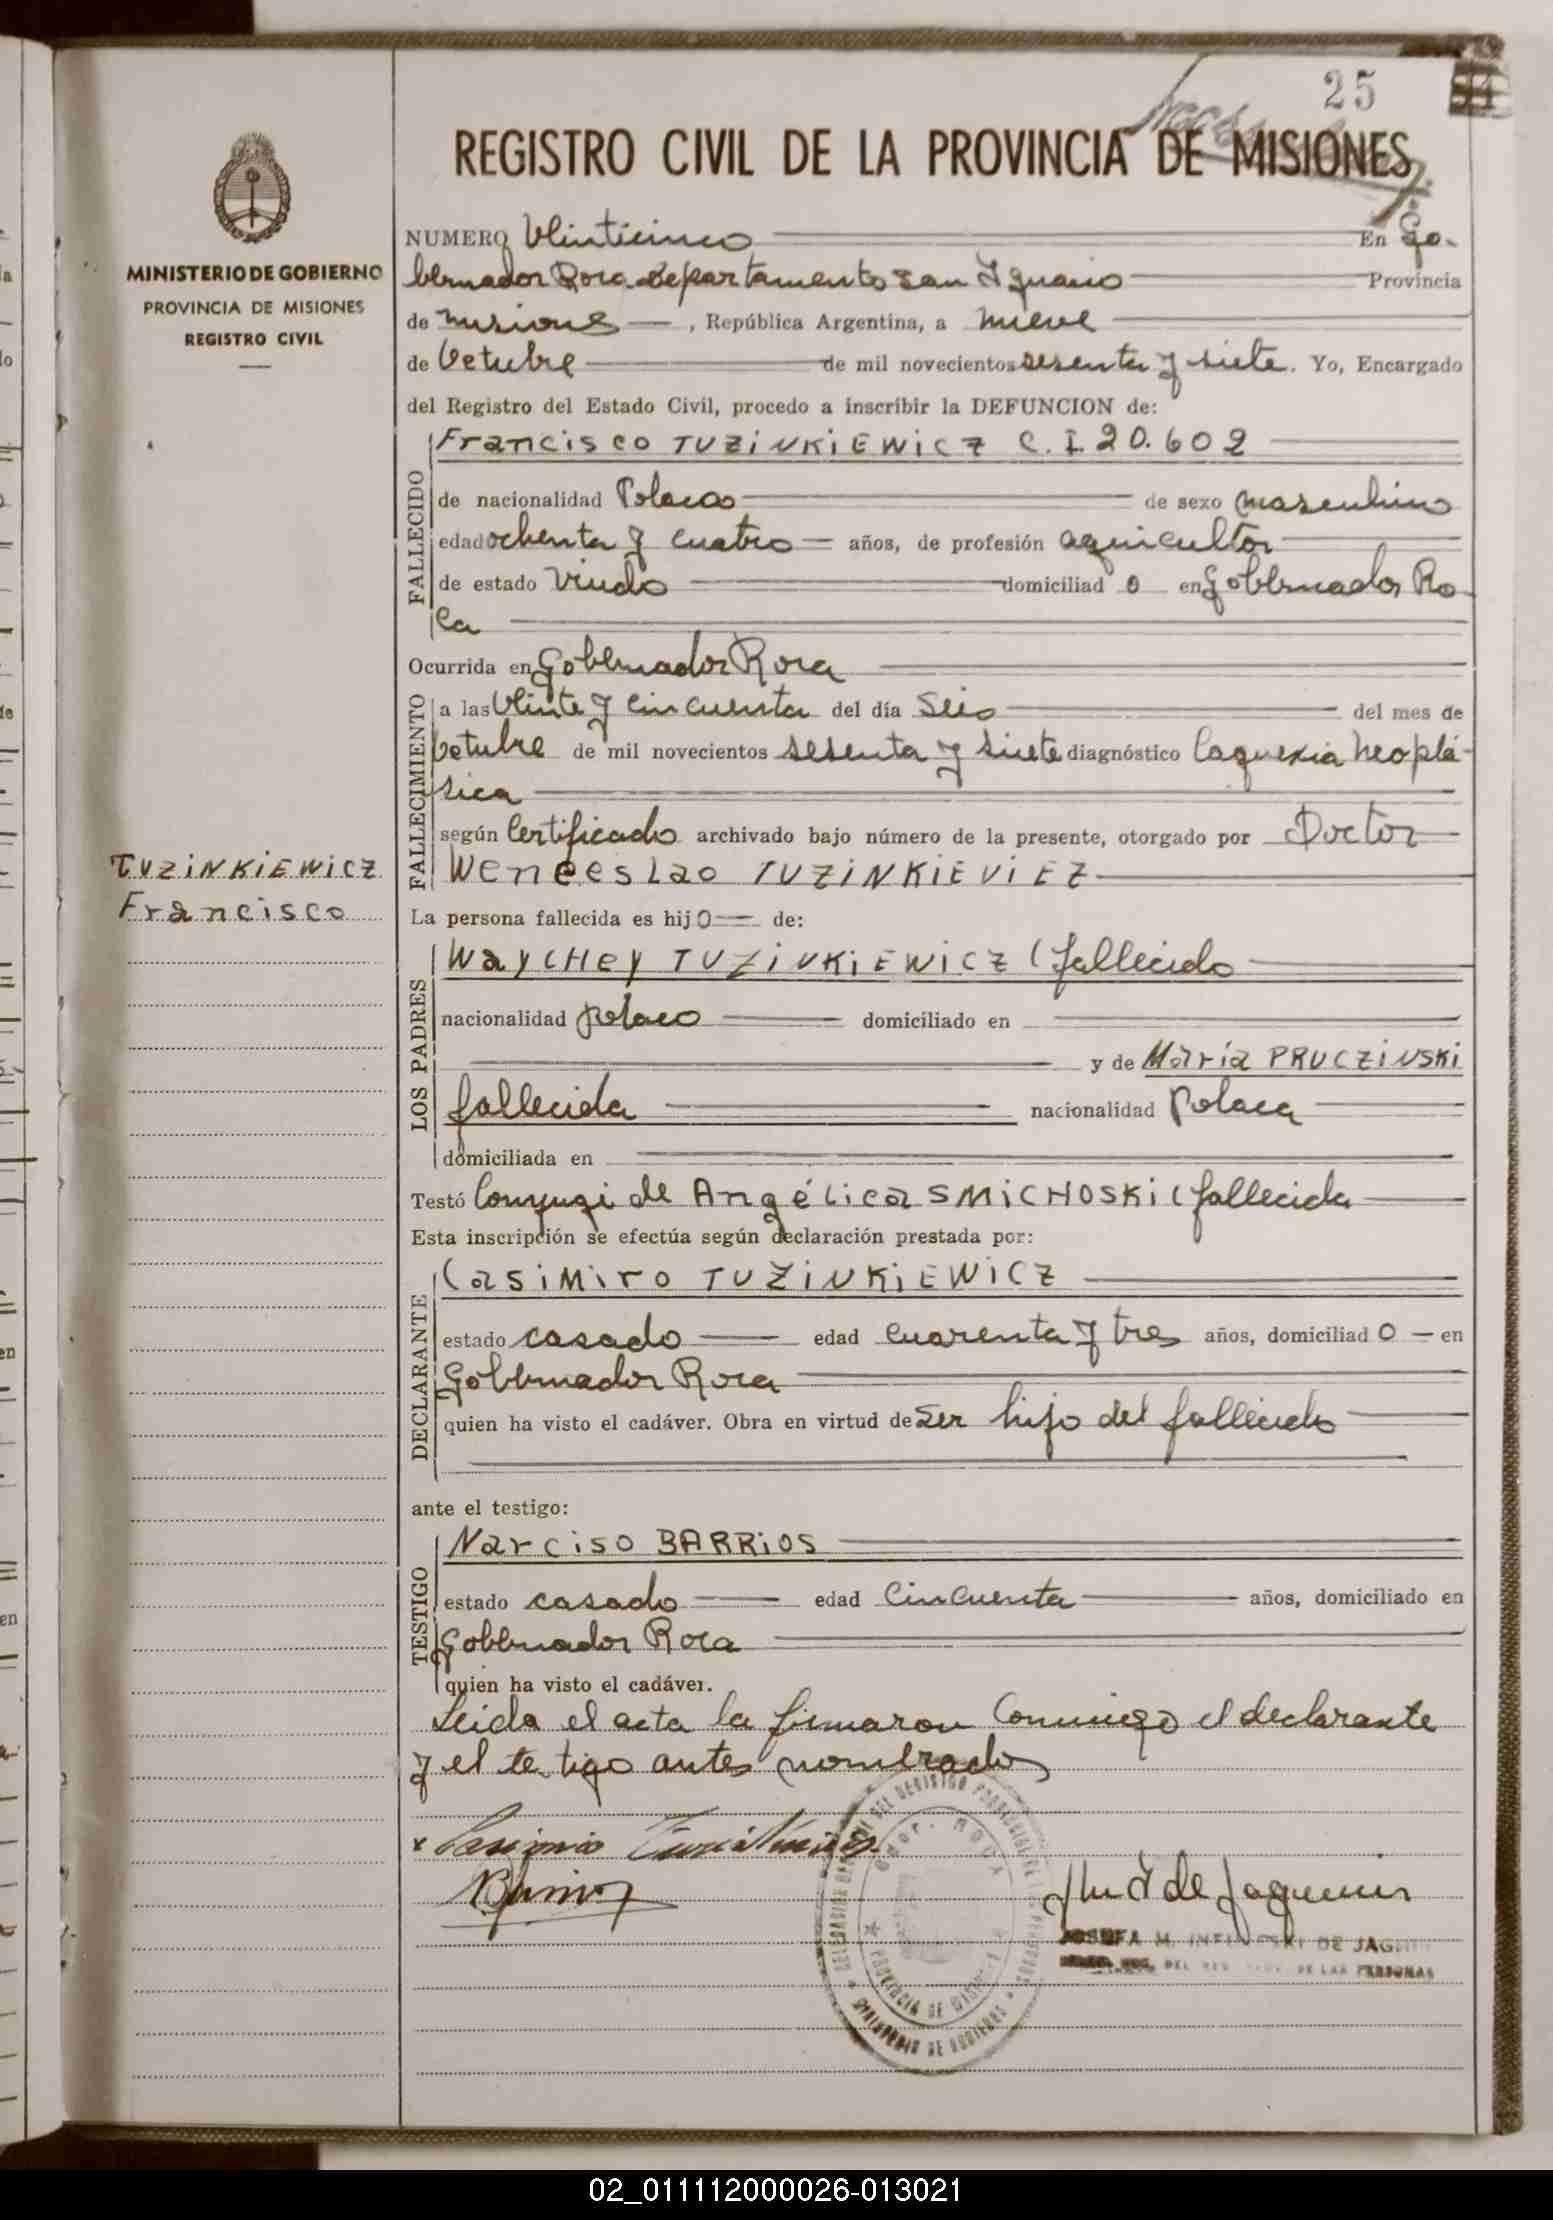 25
REGISTRO CIVIL DE LA PROVINCIA DE MISIONES
MINISTERIO DE GOBIERNO
PROVINCIA DE MISIONES
REGISTRO CIVIL
NUMERO Veinticinco En Go-
bernador Roca departamento San Ygnacio Provincia
de Misiones, República Argentina, a nueve
de Octubre de mil novecientos sesenta y siete. Yo, Encargado
del Registro del Estado Civil, procedo a inscribir la DEFUNCION de:
FALLECIDO
Francisco TUZINKIEWICZ C.I 20.602
de nacionalidad Polaca de sexo masculino
edad ochenta y cuatro años, de profesión agricultor
de estado Viudo domiciliado en Gobernador Ro
ca
Ocurrida en Gobernador Roca
FALLECIMIENTO
a las Veinte y cincuenta del día Seis del mes de
Octubre de mil novecientos sesenta y siete diagnóstico Caquexia neoplá-
sica
según Certificado archivado bajo número de la presente, otorgado por Doctor
Wenceslao TUZINKIEVIEZ
TUZINKIEWICZ
Francisco
La persona fallecida es hijo de:
LOS PADRES
WayCHey TUZINKIEWICZ (fallecido
nacionalidad polaco domiciliado en
y de María PRUCZINSKI
fallecida nacionalidad Polaca
domiciliada en
Testó Conyugi de Angélica SMICHOSKI (fallecida
Esta inscripción se efectúa según declaración prestada por:
DECLARANTE
Casimiro TUZINKIEWICZ
estado casado edad cuarenta y tres años, domiciliado en
Gobernador Roca
quien ha visto el cadáver. Obra en virtud de ser hijo del fallecido
ante el testigo:
TESTIGO
Narciso BARRIOS
estado casado edad Cincuenta años, domiciliado en
Gobernador Roca
quien ha visto el cadáver.
Leida el acta la firmaron Conmigo el declarante
y el testigo antes nombrados
PROVINCIA DE MISIONES
MINISTERIO DE GOBIERNO
de Jaquemin
DE LAS PERSONAS
02_011112000026-013021